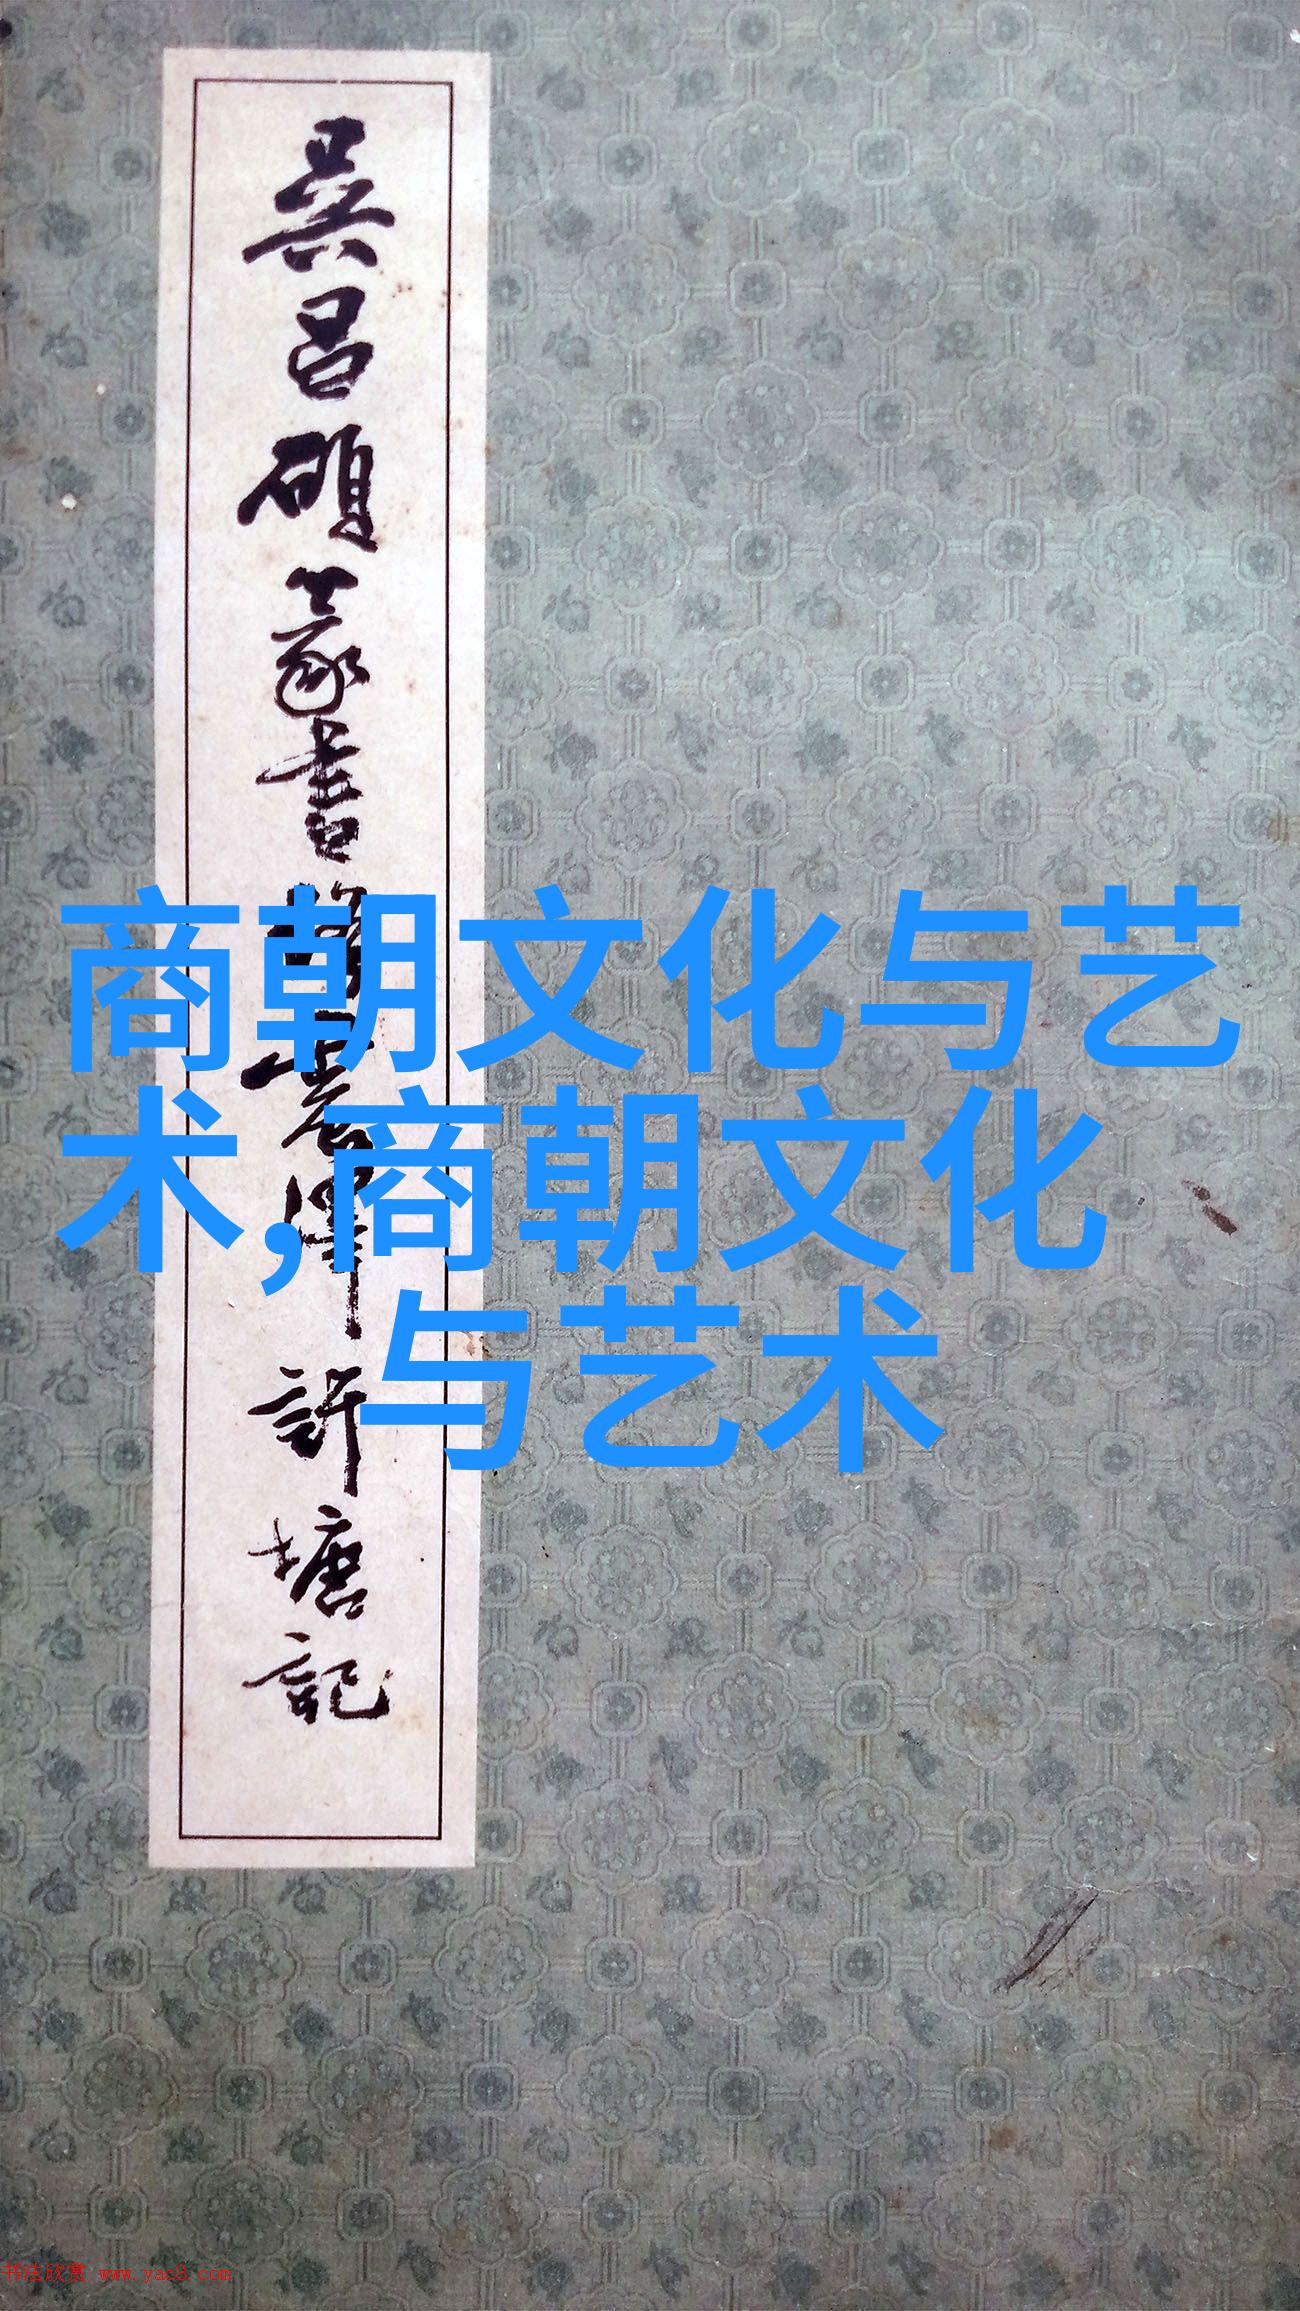 吴昌硕篆书修震泽许塘记
商朝文化与艺
术,商朝文化
与艺术
书法欣赏 www.yac8.com